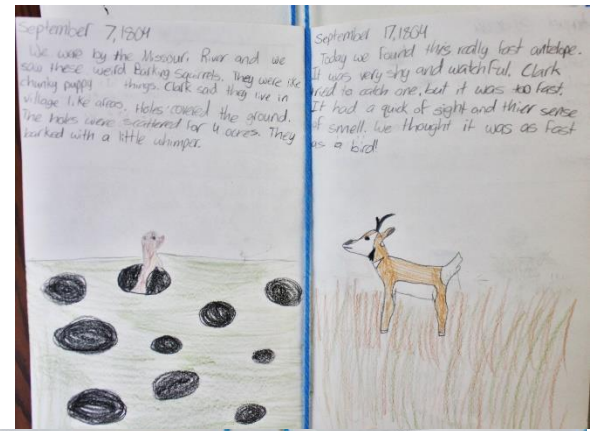 September 7, 1804
We were by the Missouri River and we
saw these weird Barking squirrels. They were like
chunky puppy things. Clark said they live in
village like areas. Holes covered the ground.
The holes were scattered for 4 acres. They
barked with a little whimper.
September 17, 1804
Today we found this really fast antelope.
It was very shy and watchful. Clark
tried to catch one, but it was too fast.
It had a quick of sight and thier sense
of smell. We thought it was as fast
as a bird!